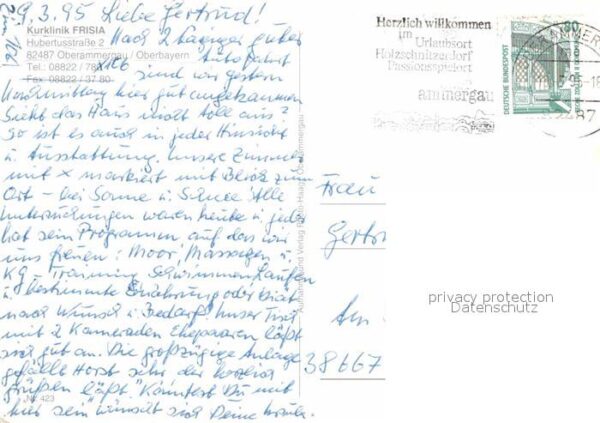 9.3.95 Liebe Gertrud!
Kurklinik FRISIA
Hubertusstraße 2
82487 Oberammergau / Oberbayern
Tel.: 08822 / 78
Fax: 08822 / 37 80
Nach 2 tägiger guter
Autofahrt
sind wir gestern
Nachmittag hier gut angekommen
Sieht das Haus nicht toll aus?
So ist es auch in jeder Hinsicht
u. Ausstattung. Unsere Zimmer
mit x markiert mit Blick zum
Ort - bei Sonne u. Schnee. Alle
Untersuchungen waren heute u. jeder
hat sein Programm, auf das wir
uns freuen: Moor, Massagen u.
KG-Training Schwimmen Laufen
u. bestimmte Ernährung oder Diät
nach Wunsch u. Bedarf. Unser Tisch
mit 2 Kameraden Ehepaaren läßt
sich gut an. Die großzügige Anlage
gefällt Horst sehr der herzlich
grüßen läßt. "Könntest Du mit
hier sein" wünscht sich Deine
Nr. 423
Herzlich willkommen
im
Urlaubsort
Holzschnitzerdorf
Passionsspielort
ammergau
DEUTSCHE BUNDESPOST
80
Frau
Gertr
Am
38667
privacy protection
Datenschutz